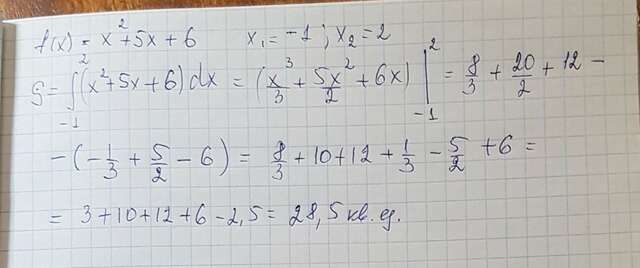 f(x) = x²+5x+6 x₁=-1; x₂=2
S = ∫₋₁² (x²+5x+6)dx = (x³/3 + 5x²/2 + 6x) |₋₁² = 8/3 + 20/2 + 12 -
-(-1/3 + 5/2 - 6) = 8/3 + 10+12 + 1/3 - 5/2 + 6 =
= 3+10+12+6-2,5 = 28,5 кв. ед.